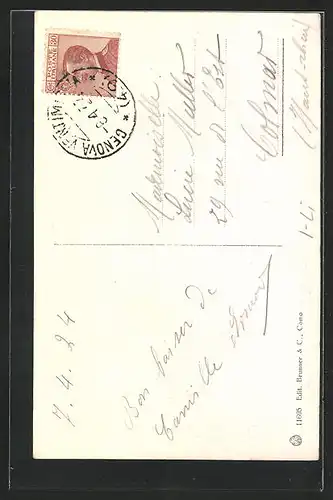 GENOVA VENTIMIGLIA
Mademoiselle
Lucie Muller
29 rue de l'Est
Colmar
(Haut-Rhin)
1-Li
7.4.24
Bon baiser de
Camille
11695 Edit. Brunner & C., Como